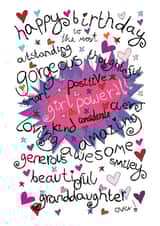 happy birthday
to the most
outstanding
gorgeous thoughtful
smart positive
girl power!!
clever
considerate
loving kind amazing
generous awesome
smiley
beautiful
granddaughter
ever!